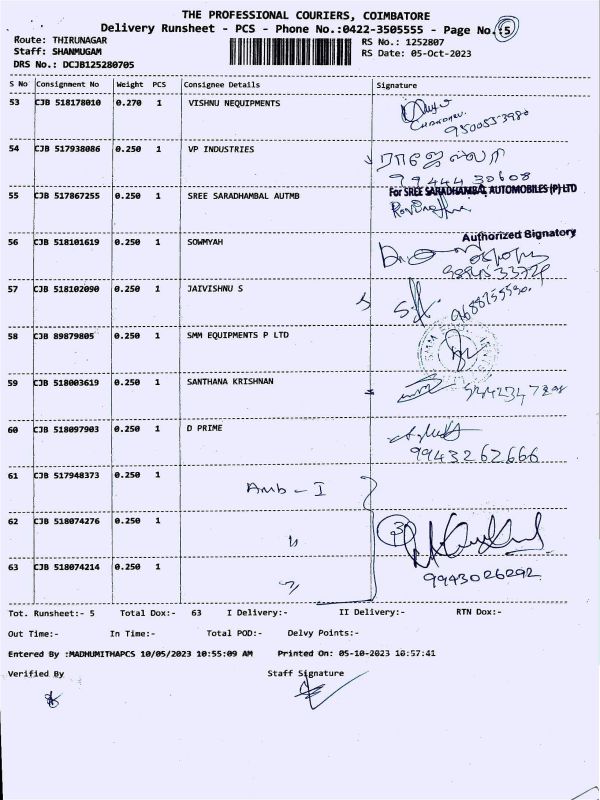 THE PROFESSIONAL COURIERS, COIMBATORE
Delivery Runsheet - PCS - Phone No.:0422-3505555 - Page No.:5
Route: THIRUNAGAR RS No.: 1252807
Staff: SHANMUGAM RS Date: 05-Oct-2023
DRS No.: DCJB125280705
S No Consignment No Weight PCS Consignee Details Signature
53 CJB 518178010 0.270 1 VISHNU NEQUIPMENTS
9500553980
54 CJB 517938086 0.250 1 VP INDUSTRIES
99444 30608
55 CJB 517867255 0.250 1 SREE SARADHAMBAL AUTMB For SREE SARADHAMBAL AUTOMOBILES (P) LTD
Authorized Signatory
56 CJB 518101619 0.250 1 SOWMYAH
57 CJB 518102090 0.250 1 JAIVISHNU S
58 CJB 89879805 0.250 1 SMM EQUIPMENTS P LTD
59 CJB 518003619 0.250 1 SANTHANA KRISHNAN
60 CJB 518097903 0.250 1 D PRIME
9943262666
61 CJB 517948373 0.250 1 Amb - I
62 CJB 518074276 0.250 1 3
63 CJB 518074214 0.250 1
9943026292
Tot. Runsheet:- 5 Total Dox:- 63 I Delivery:- II Delivery:- RTN Dox:-
Out Time:- In Time:- Total POD:- Delvy Points:-
Entered By :MADHUMITHAPCS 10/05/2023 10:55:09 AM Printed On: 05-10-2023 10:57:41
Verified By Staff Signature